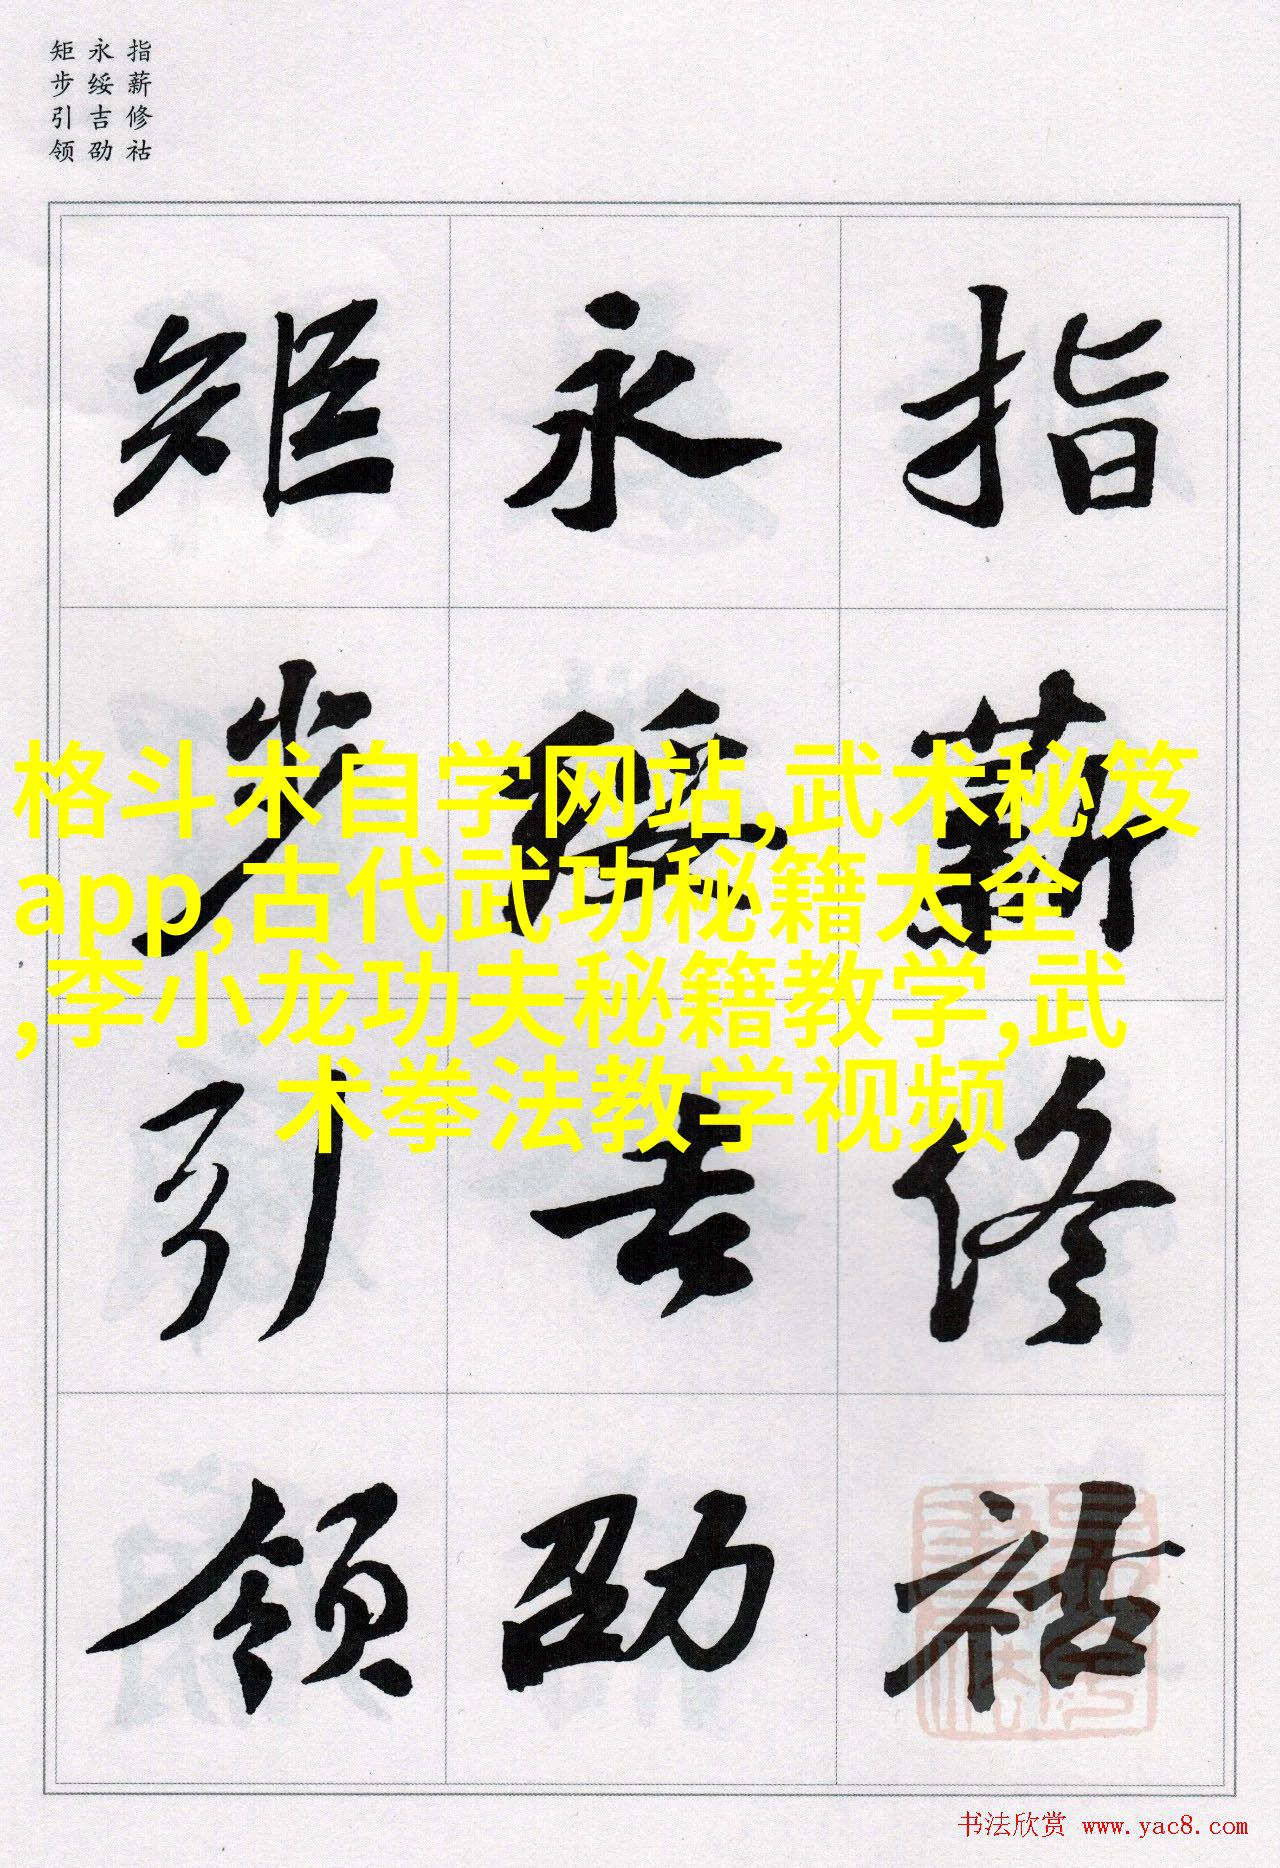 指薪修祜
永绥吉劭
矩步引领
指薪修祜
永绥吉劭
矩步引领
格斗术自学网站,武术秘笈
app,古代武功秘籍大全
,李小龙功夫秘籍教学,武
术拳法教学视频
书法欣赏 www.yac8.com